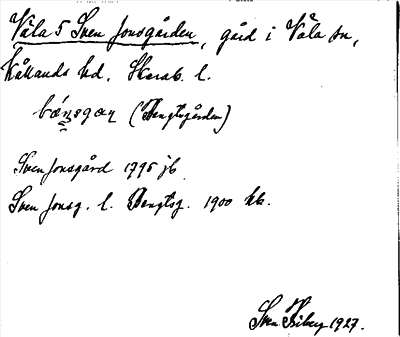 Våla 5 Sven Jonsgården, gård i Våla sn,
Kållands hd. Skarab. l.
bæ̀nsgaṇ (Bengtsgården)
Svenjonsgård 1795 jb
Sven Jonsg. l. Bengtsg. 1900 kb.
Sven 1927.